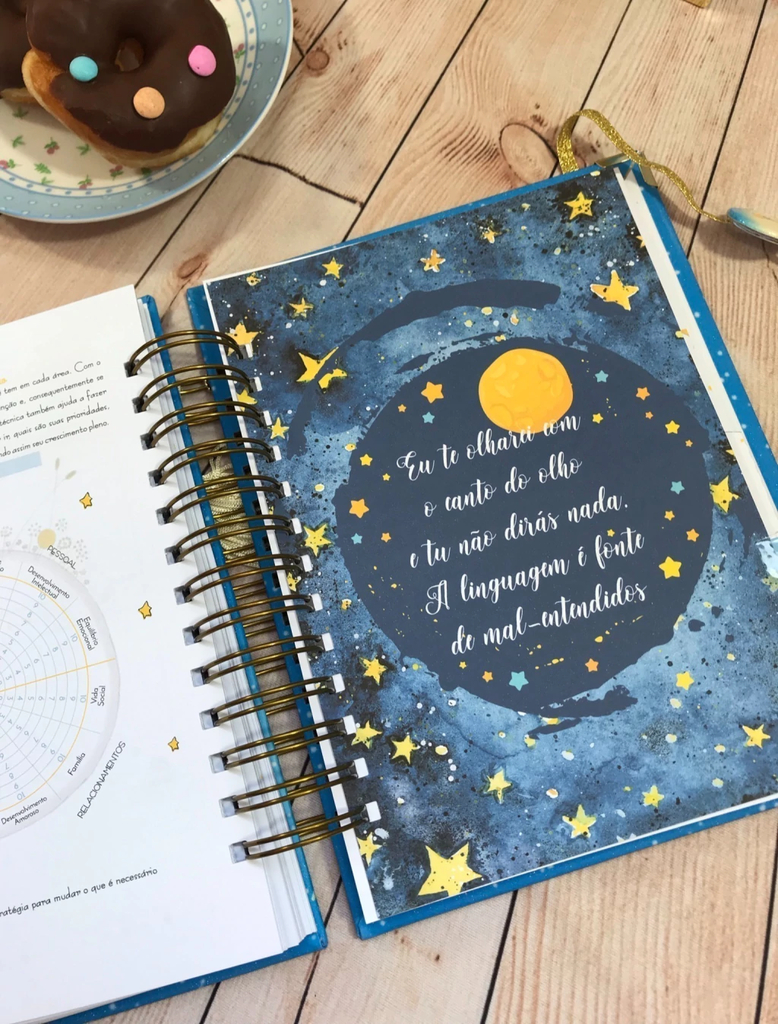 tem em cada área. Com o
nção e, consequentemente se
técnica também ajuda a fazer
r in quais são suas prioridades,
ndo assim seu crescimento pleno.
PESSOAL
Desenvolvimento
Intelectual
Equilíbrio
Emocional
Vida
Social
Família
RELACIONAMENTOS
Desenvolvimento
Amoroso
ratégia para mudar o que é necessário
Eu te olharei com
o canto do olho
e tu não dirás nada.
A linguagem é fonte
de mal-entendidos